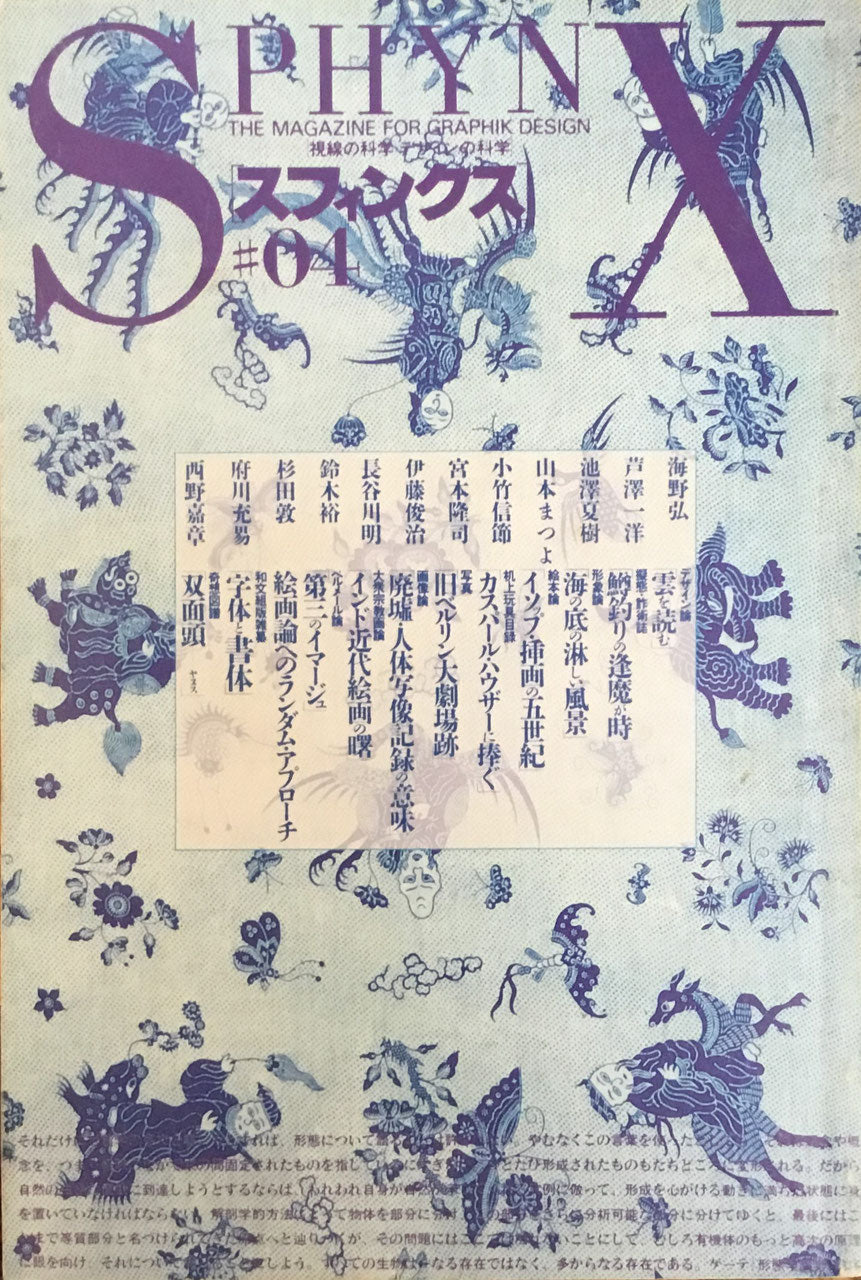 SPHYNX
THE MAGAZINE FOR GRAPHIK DESIGN
視線の科学 デザインの科学
[スフィンクス]
#04
海野弘
デザイン論
雲を読む
芦澤一洋
鰍釣りの逢魔が時
池澤夏樹
形象論
海の底の淋しい風景
山本まつよ
絵本論
イソップ・挿画の五世紀
小竹信節
机上玩具目録
カスパール・ハウザーに捧ぐ
宮本隆司
写真
旧ベルリン大劇場跡
伊藤俊治
画像論
廃墟・人体写像記録の意味
長谷川明
大衆宗教画論
インド近代絵画の曙
鈴木裕
フェルメール論
「第三のイマージュ」
杉田敦
絵画論へのランダム・アプローチ
府川充男
和文組版雑纂
「字体」と「書体」
西野嘉章
奇想図譜
双面頭
ヤヌス
それだけ ば、形態について やむなくこの言葉を使った
念を、つ 固定されたものを指して たび形成されたものもたちどころに変形される。だから
自然の に到達しようとするならば、われわれ自身が 例に倣って、形成を心がける動きに満ちた状態に身
を置いていなければならない。解剖学的方法 て物体を部分に分け 分析可能な 分に分けてゆくと、最後にはこ
まで等質部分と名づけられてきた 点へと辿りつくが、その問題にはここ ないことにして、むしろ有機体のもっと高次の原理
に眼を向け、それについて ことにしよう。すべての生物は一なる存在ではなく、多からなる存在である。ゲーテ